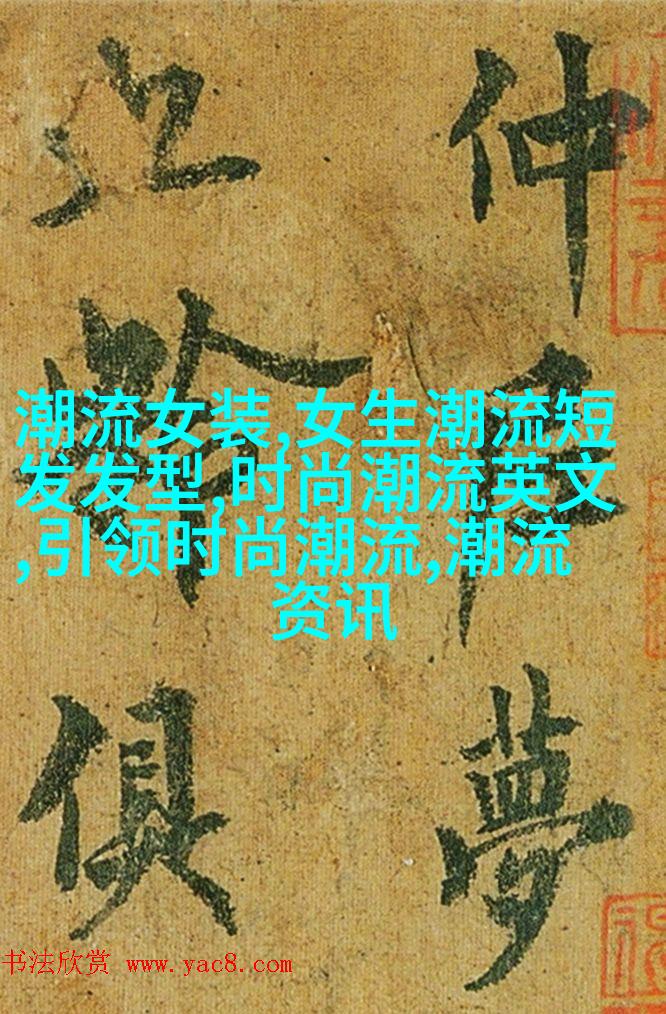 仲尼夢
九齡俱
潮流女装,女生潮流短
发发型,时尚潮流英文
,引领时尚潮流,潮流
资讯
书法欣赏 www.yac8.com